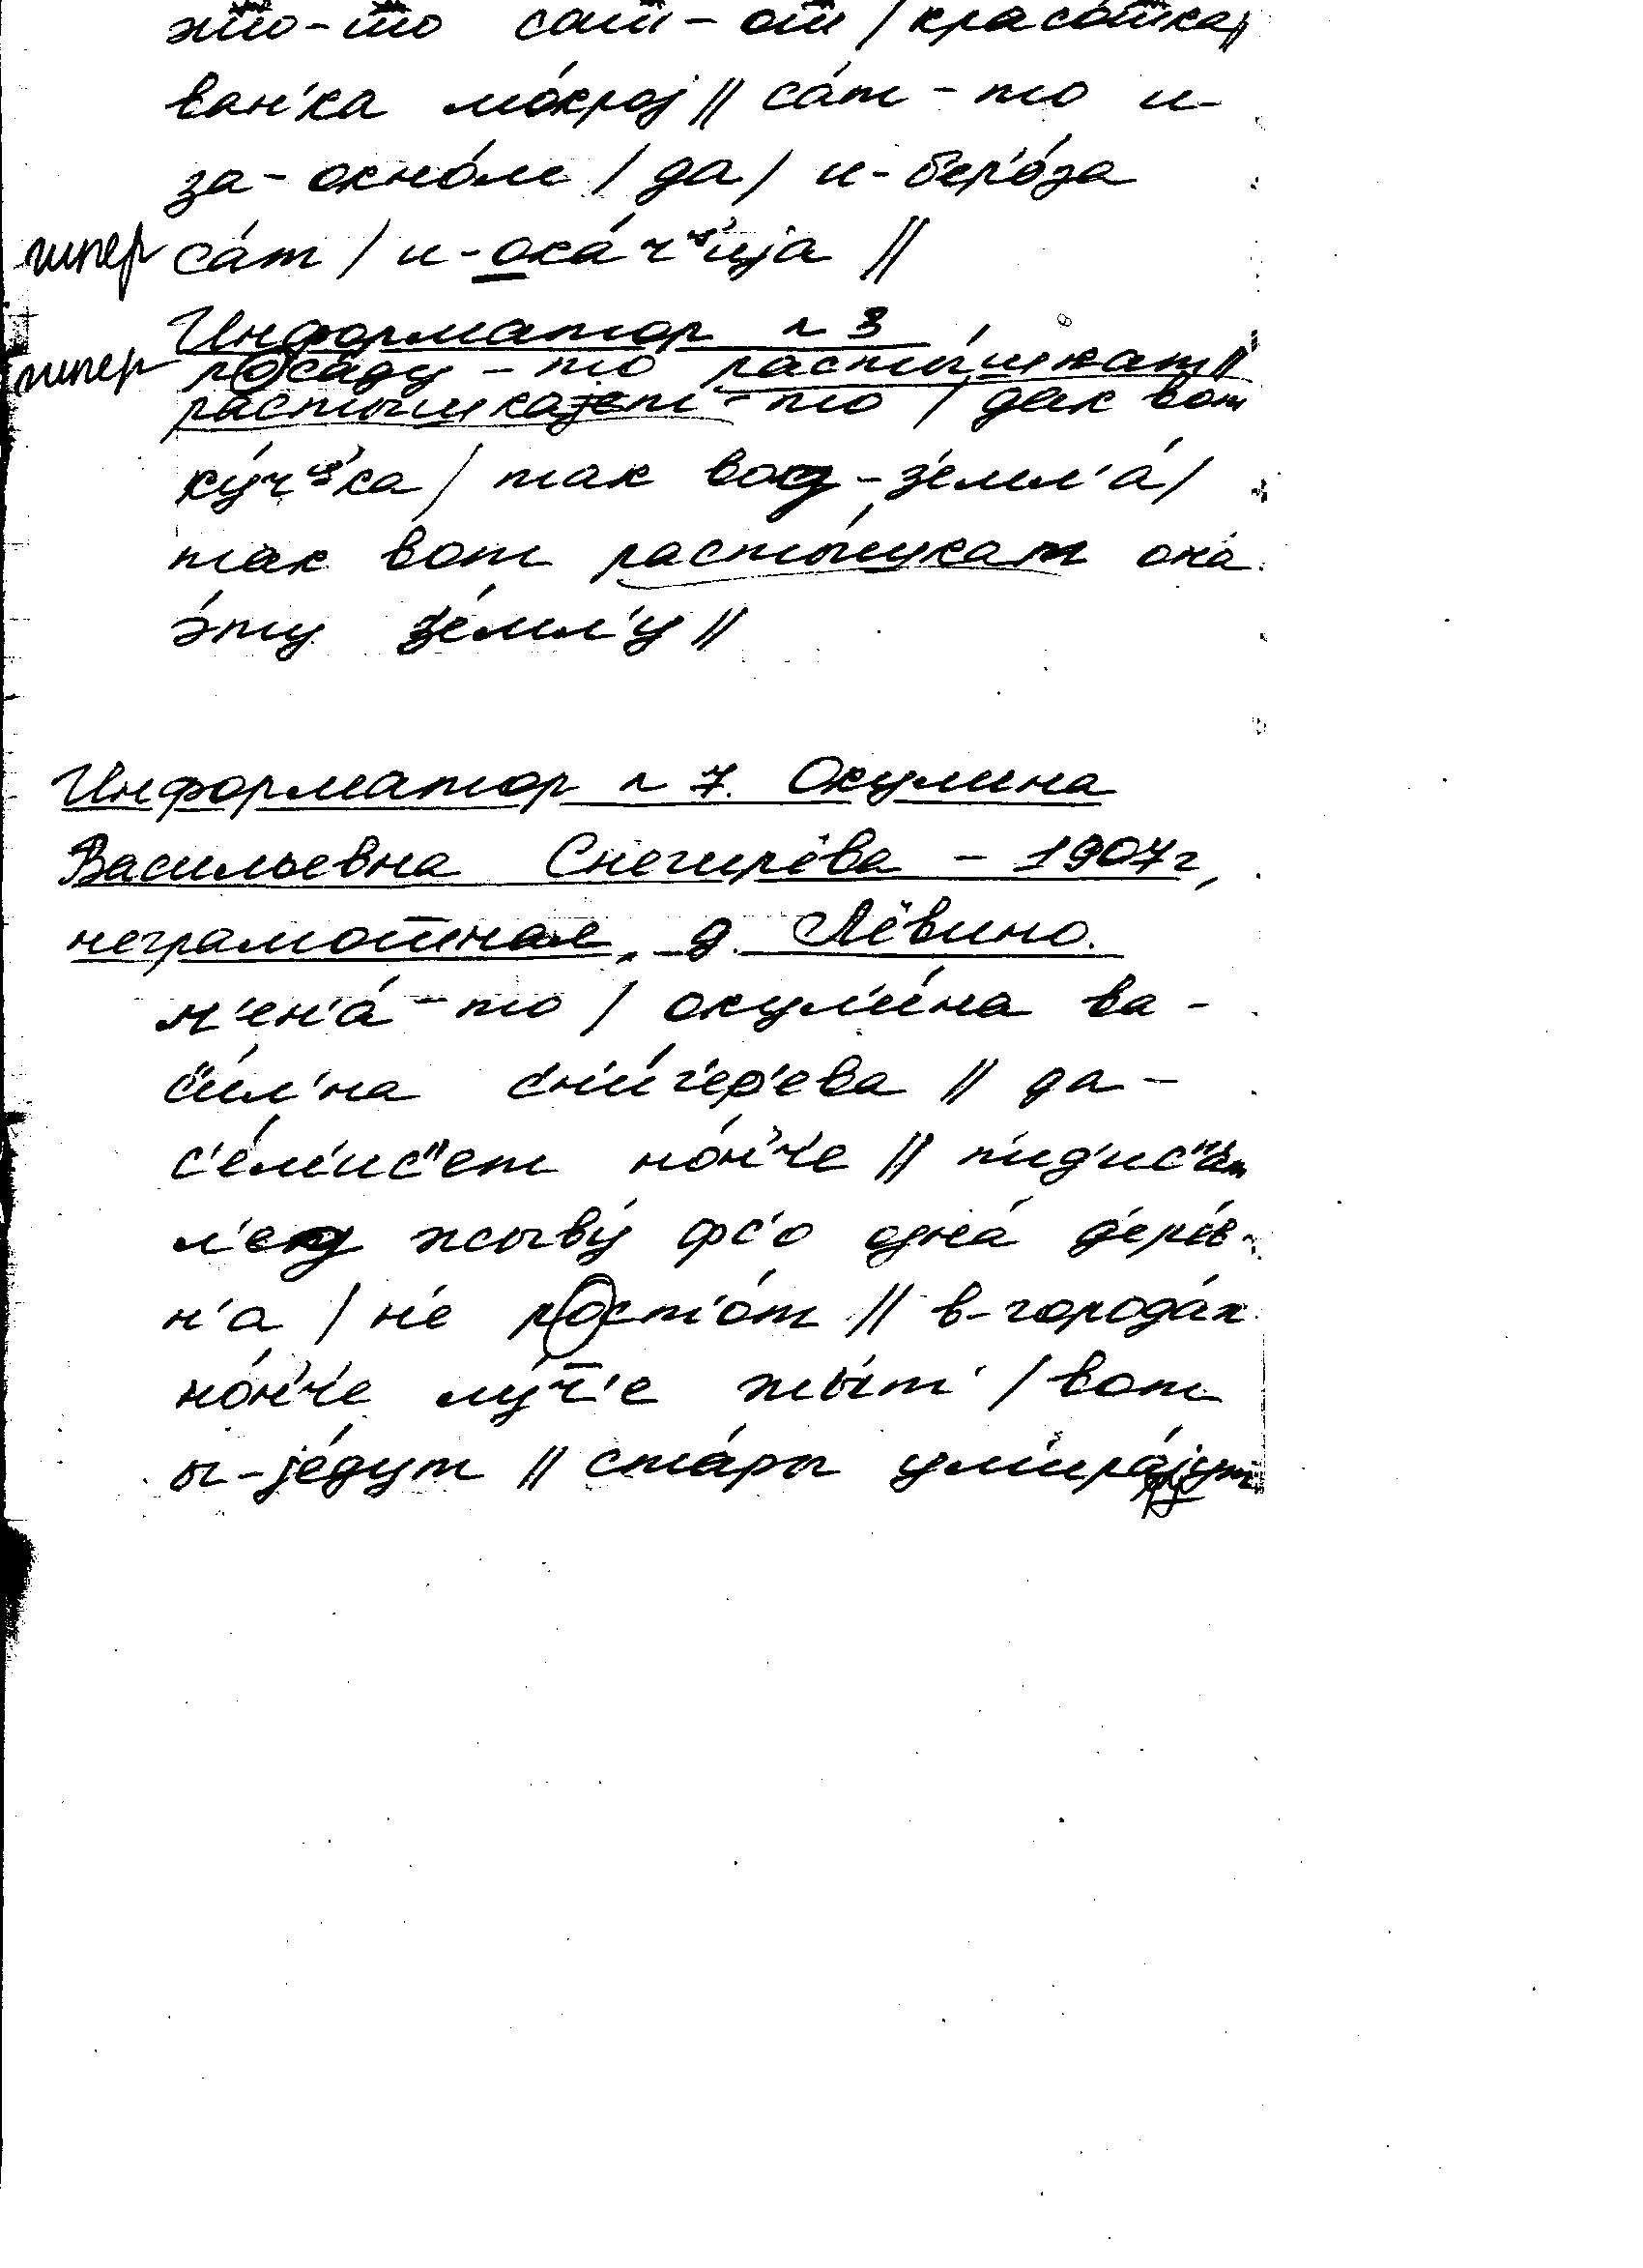 э̄то-то сат-от / красо́тка //
ван'ка мо́крој // са́т-то и-
за-окно́м / да / и-бер'о́за
гипер са́т / и-ока́ч'ија //
Информатор n 3
гипер росаду-то расты́шкат //
растышкајет-то / дак вот
ку́ч'ка / так вод-з'емл'а́ /
так вот расты́шкат она
э́ту з'е́мл'у //
Информатор n 7. Окулина
Васильевна Снегирёва – 1907г,
неграмотная, д. Лёвино.
м'ен'а́-то / окул'и́на ва-
с'и́л'на с'н'и́г'ер'ева // да-
с'е́м'ис'ет но́н'ч'е // п'ид'ис'а́т
л'ед жыву́ фс'о одна́ д'ере́в-
н'а / н'е рост'о́т // в-города́х
но́н'ч'е лу́ч'е жы́т' / вот
ы-је́дут // ста́ры ум'ира́јут